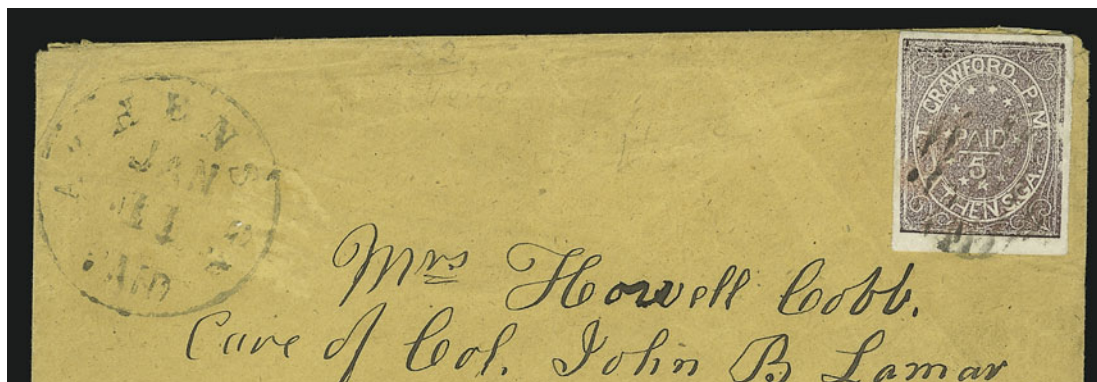 ATHENS
JAN
11
T. CRAWFORD, P.M.
PAID
5
ATHENS, GA.
Mrs Howell Cobb.
Care of Col. John B Lamar